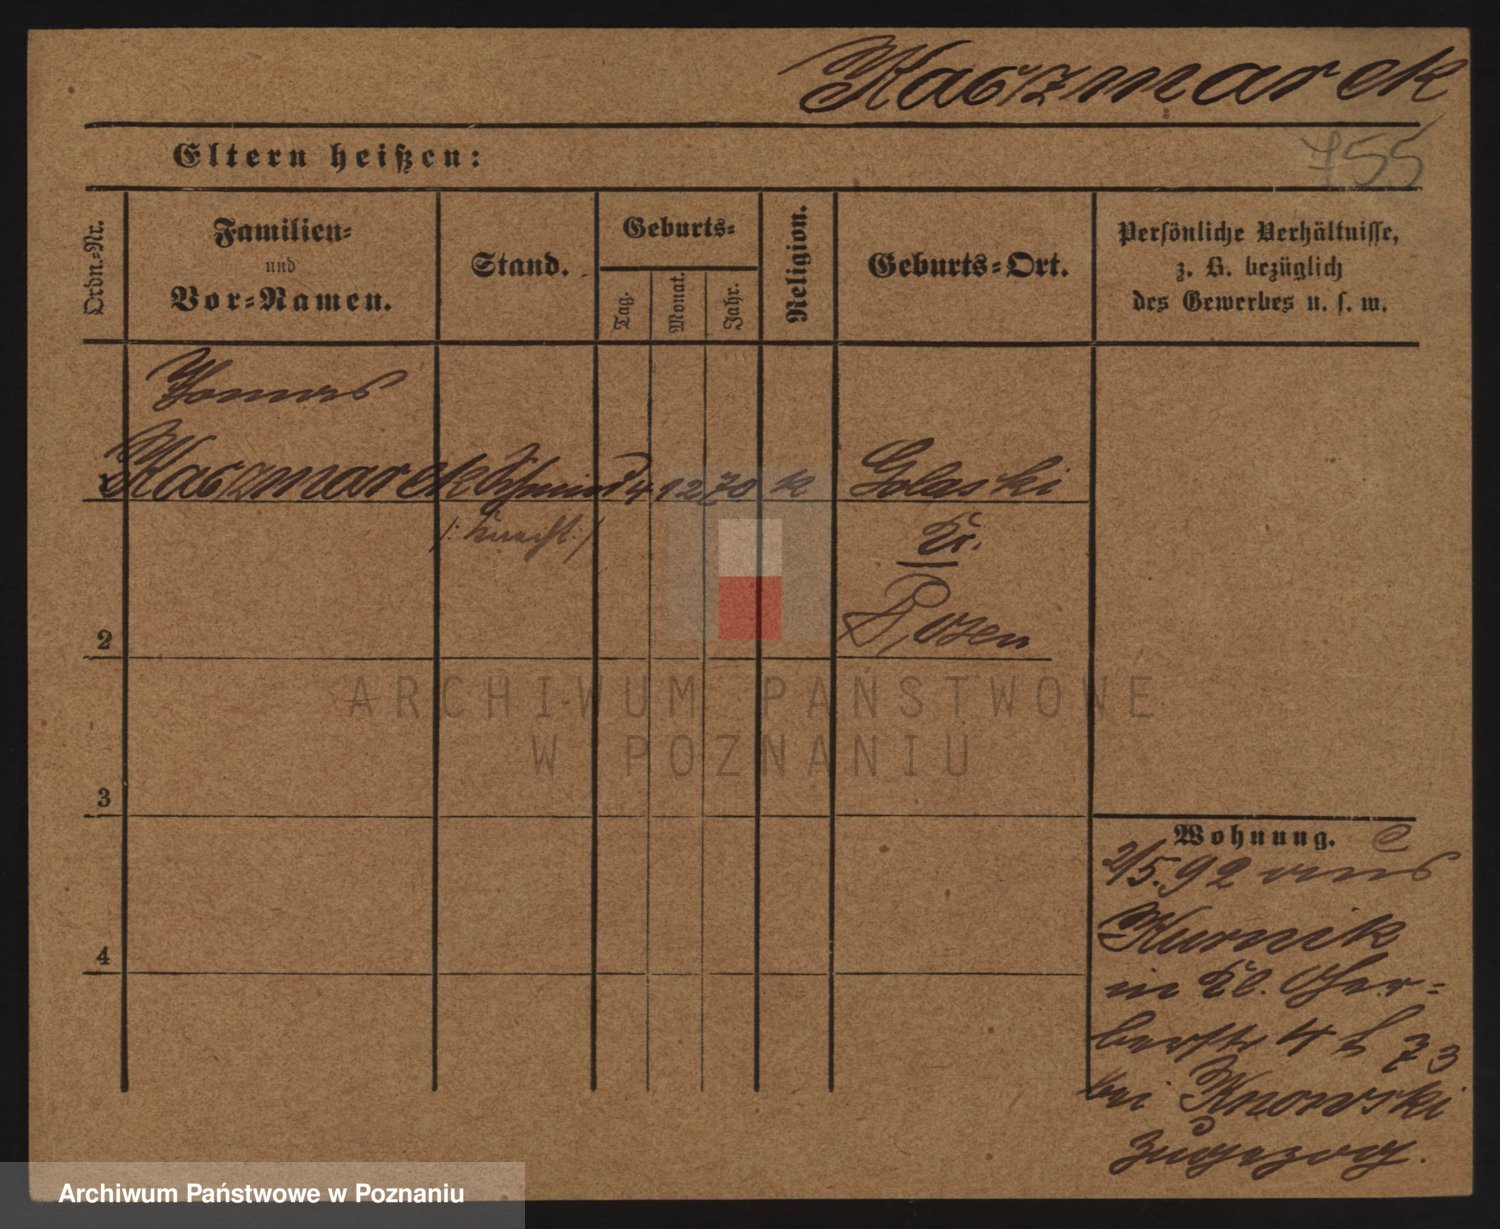 Kaczmarek
755
Eltern heißen:
Ordn.-Nr.
Familien-
und
Vor-Namen.
Stand.
Geburts-
Tag.
Monat.
Jahr.
Religion.
Geburts-Ort.
Persönliche Verhältnisse,
z. B. bezüglich
des Gewerbes u. s. w.
Kaczmarek Schmied 4 12 70 k Golaski
/: Knecht :/
Kr.
Posen
2
3
4
Wohnung.
2/5.92 aus
Kurnik
in Kl. Ger-
berstr 4
bei Knowski
zugezog.
ARCHIWUM PAŃSTWOWE
W POZNANIU
Archiwum Państwowe w Poznaniu